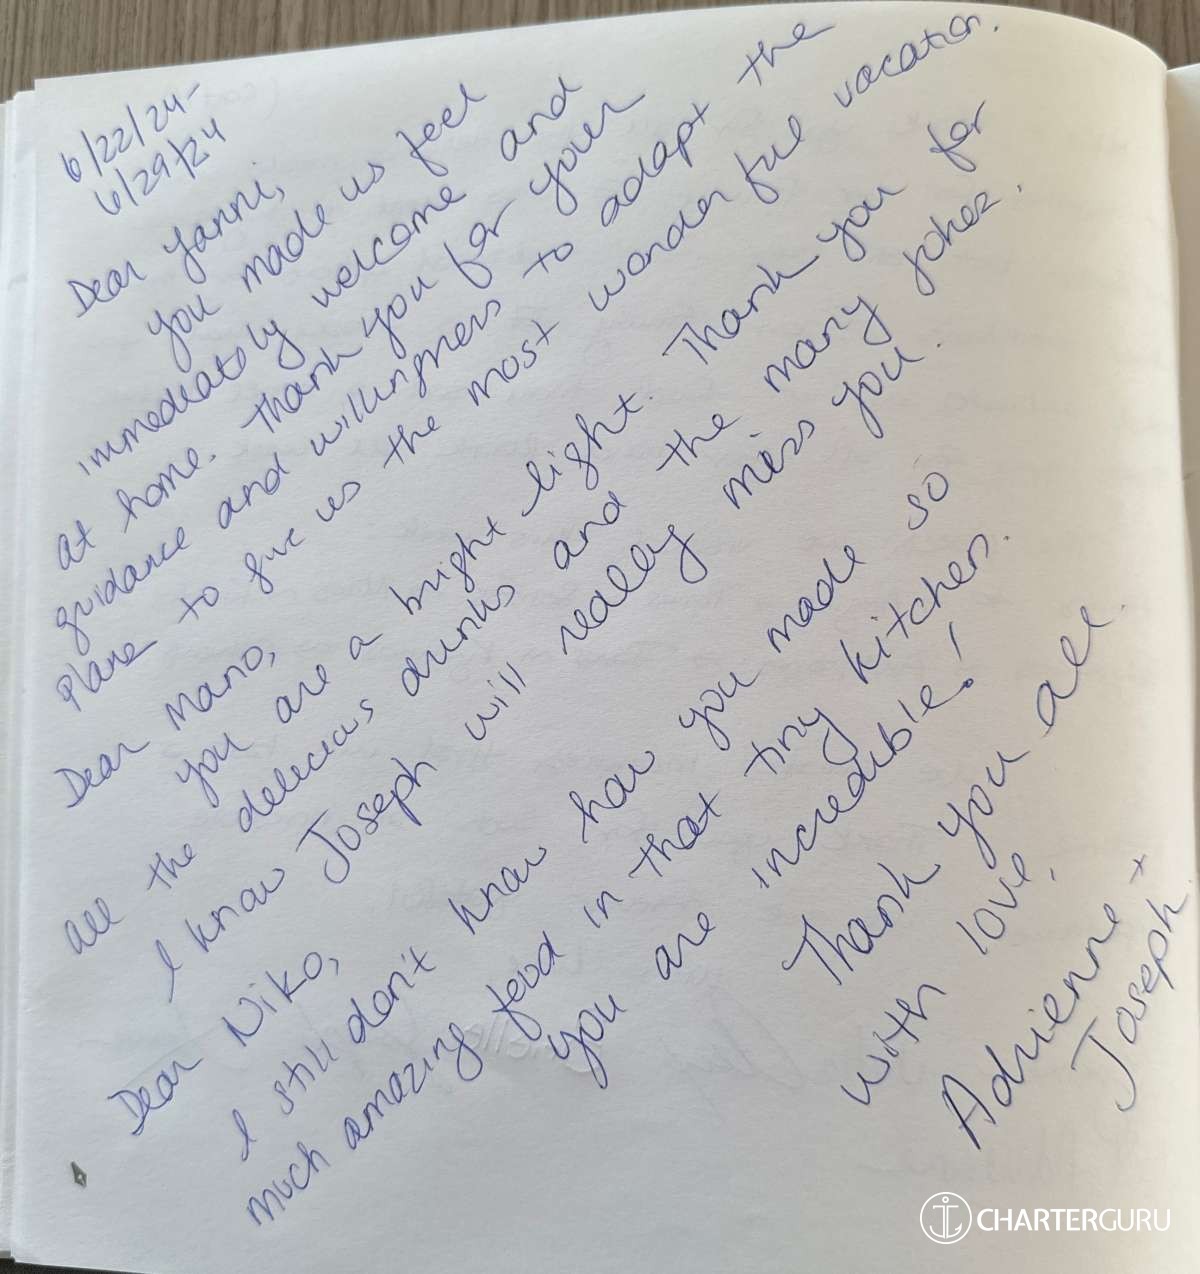 6/22/24-
6/29/24
Dear Yanni,
you made us feel
immediately welcome and
at home. Thank you for your
guidance and willingness to adapt the
plane to give us the most wonderful vacation.
Dear Mano,
you are a bright light. Thank you for
all the delecious drinks and the many jokes.
I know Joseph will really miss you.
Dear Niko,
I still don't know how you made so
much amazing food in that tiny kitchen.
you are incredible!
Thank you all.
with love,
Adrienne +
Joseph
CHARTERGURU